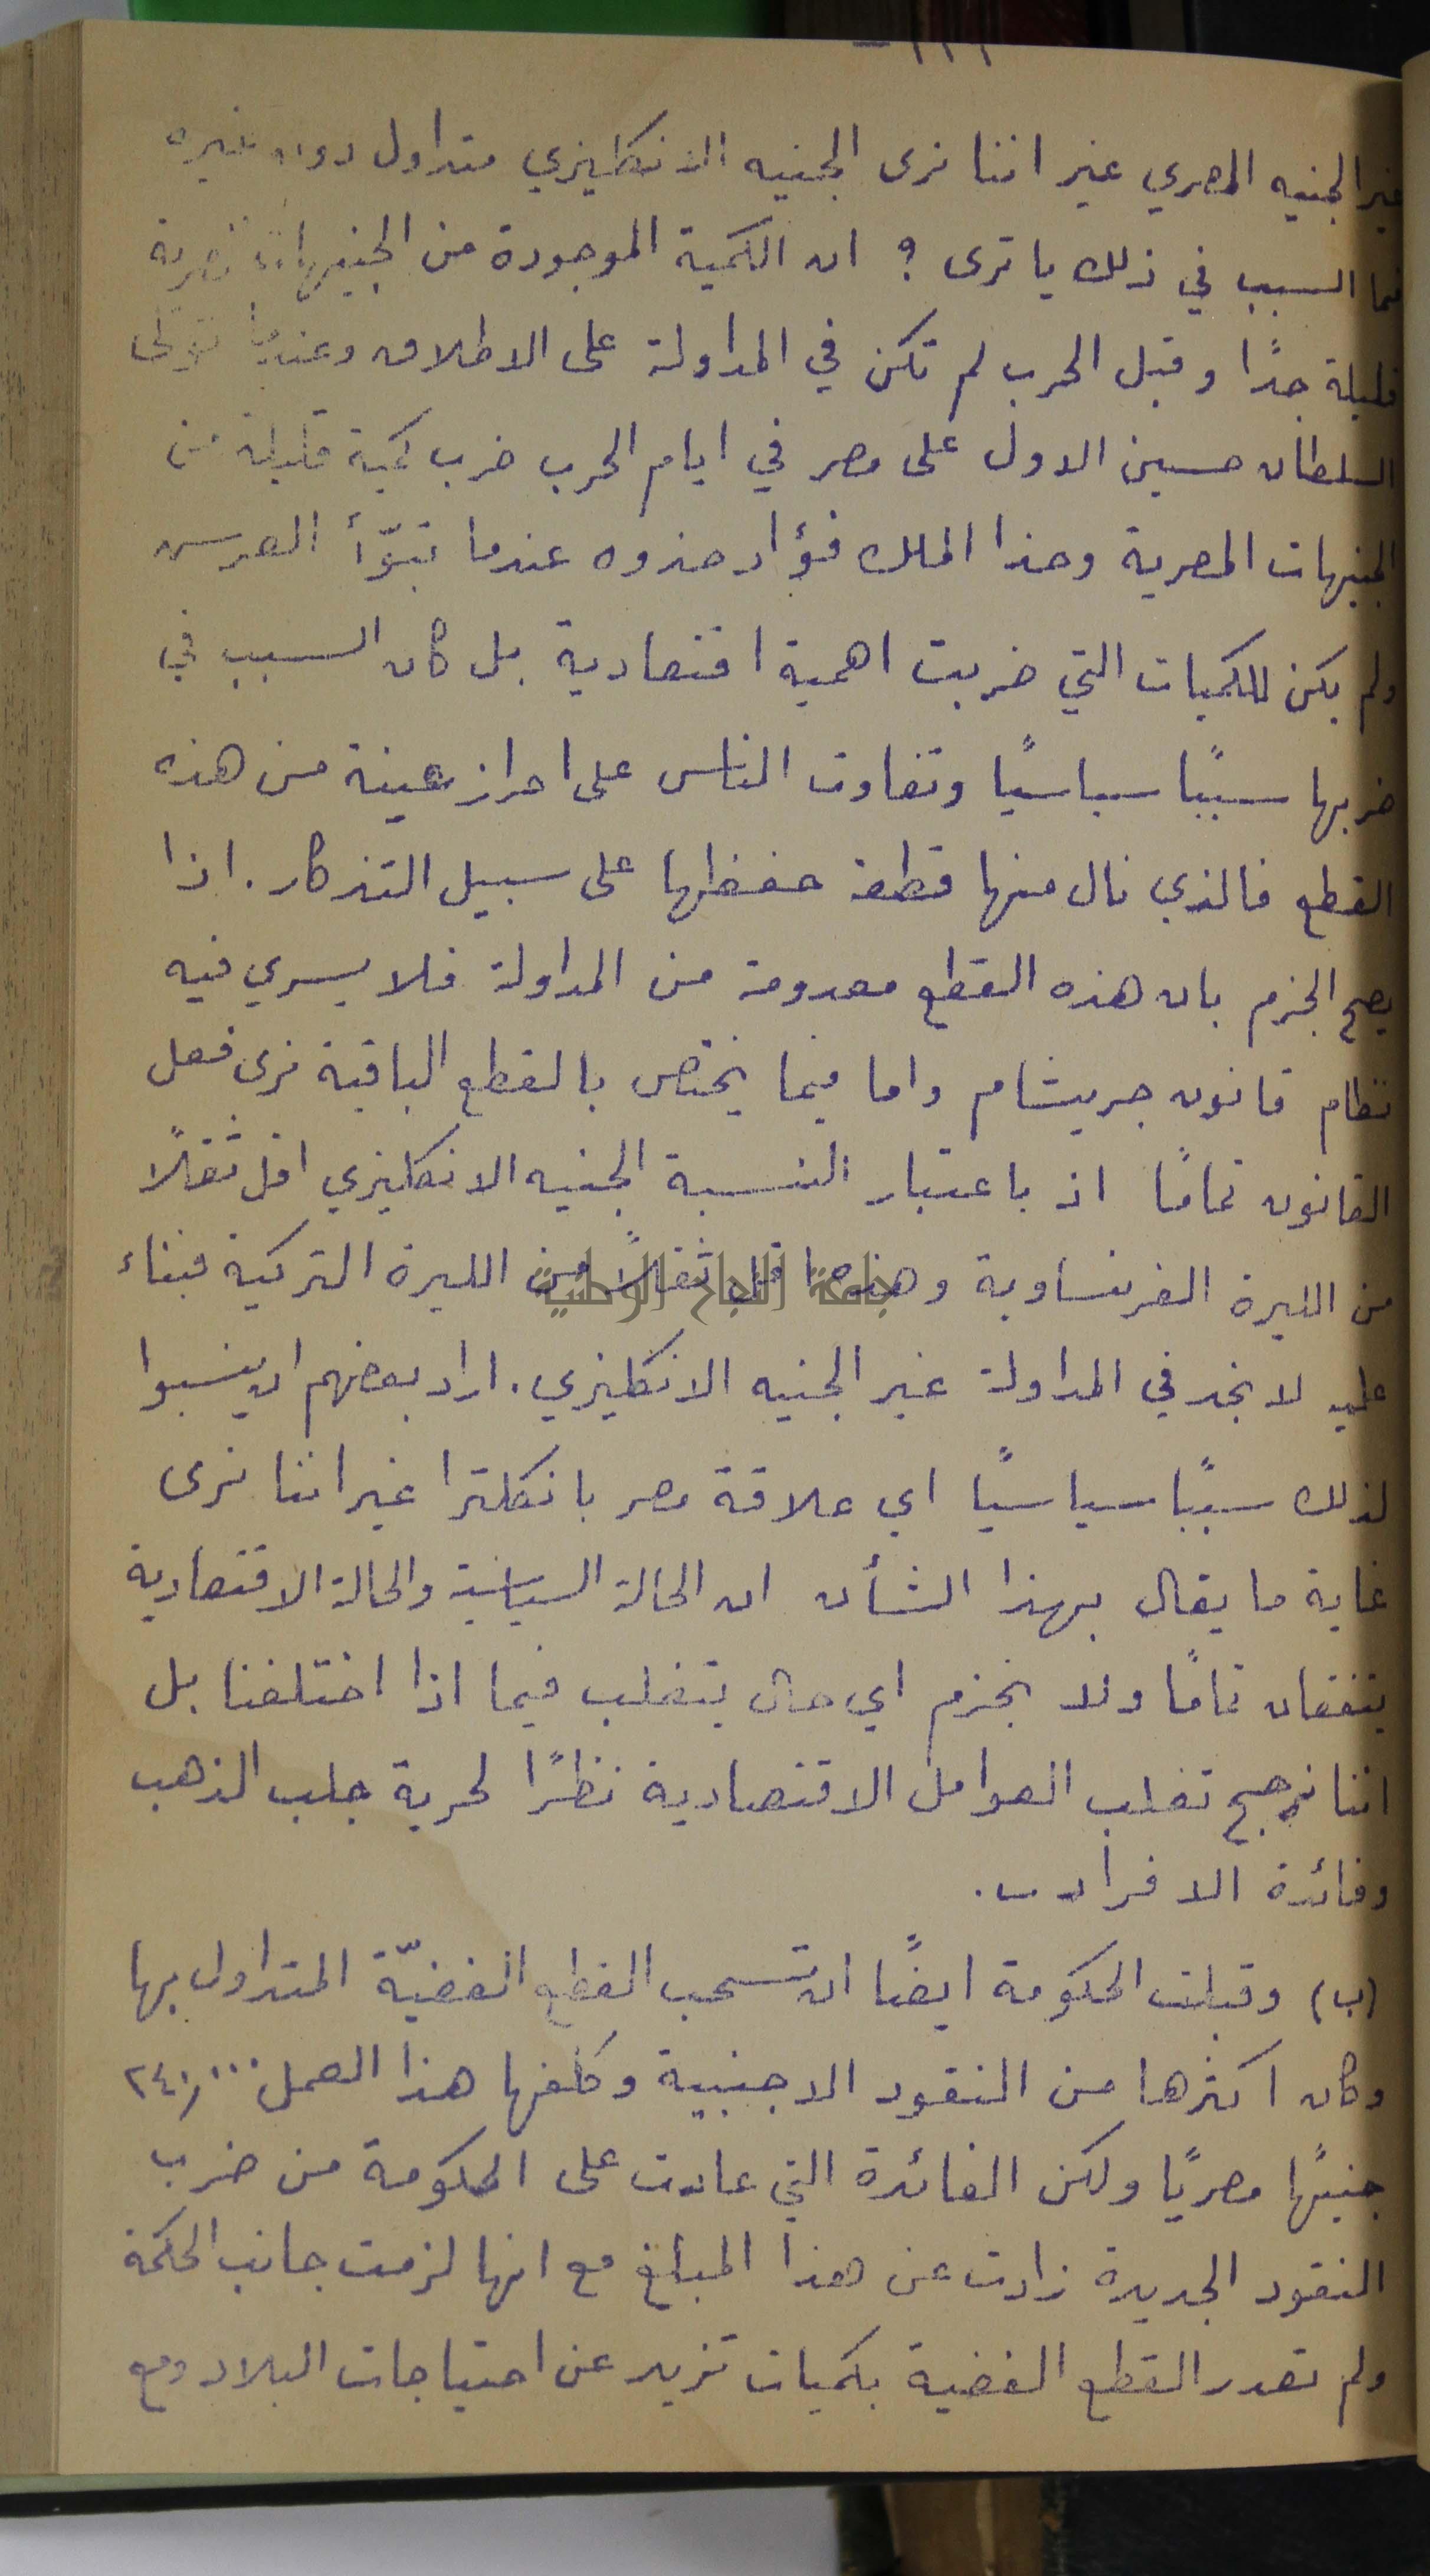 غير الجنيه المصري غير اننا نرى الجنيه الانكليزي متداول دون غيره
فما السبب في ذلك يا ترى ؟ ان الكمية الموجودة من الجنيهات المصرية
قليلة جدًا وقبل الحرب لم تكن في المداولة على الاطلاق وعندما تولى
السلطان حسين الاول على مصر في ايام الحرب ضرب كمية قليلة من
الجنيهات المصرية وحذا الملك فؤاد حذوه عندما تبوّأ العرش
ولم يكن للكميات التي ضربت اهمية اقتصادية بل كان السبب في
ضربها سببًا سياسيًا وتفاوت الناس على احراز عينة من هذه
القطع فالذي نال منها قطعة حفظها على سبيل التذكار . اذا
يصح الجزم بان هذه القطع معدومة من المداولة فلا يسري فيه
نظام قانون جريشام واما فيما يختص بالقطع الباقية نرى فعل
القانون تمامًا اذ باعتبار النسبة الجنيه الانكليزي اقل ثقلًا
من الليرة الفرنساوية وهذه اقل ثقلًا من الليرة التركية فبناء
عليه لا نجد في المداولة غير الجنيه الانكليزي . اراد بعضهم ان ينسبوا
لذلك سببًا سياسيًا اي علاقة مصر بانكلترا غير اننا نرى
غاية ما يقال بهذا الشأن ان الحالة السياسية والحالة الاقتصادية
يتفقان تمامًا ولا نجزم اي حال يتغلب فيما اذا اختلفنا بل
اننا نرجح تغلب العوامل الاقتصادية نظرًا لحرية جلب الذهب
وفائدة الافراد .
(ب) وقبلت الحكومة ايضًا ان تسحب القطع الفضيّة المتداول بها
وكان اكثرها من النقود الاجنبية وكلفها هذا العمل ٢٤٠,٠٠٠
جنيهًا مصريًا ولكن الفائدة التي عادت على الحكومة من ضرب
النقود الجديدة زادت عن هذا المبلغ مع انها لزمت جانب الحكمة
ولم تصدر القطع الفضية بكميات تزيد عن احتياجات البلاد ومع
جامعة النجاح الوطنية